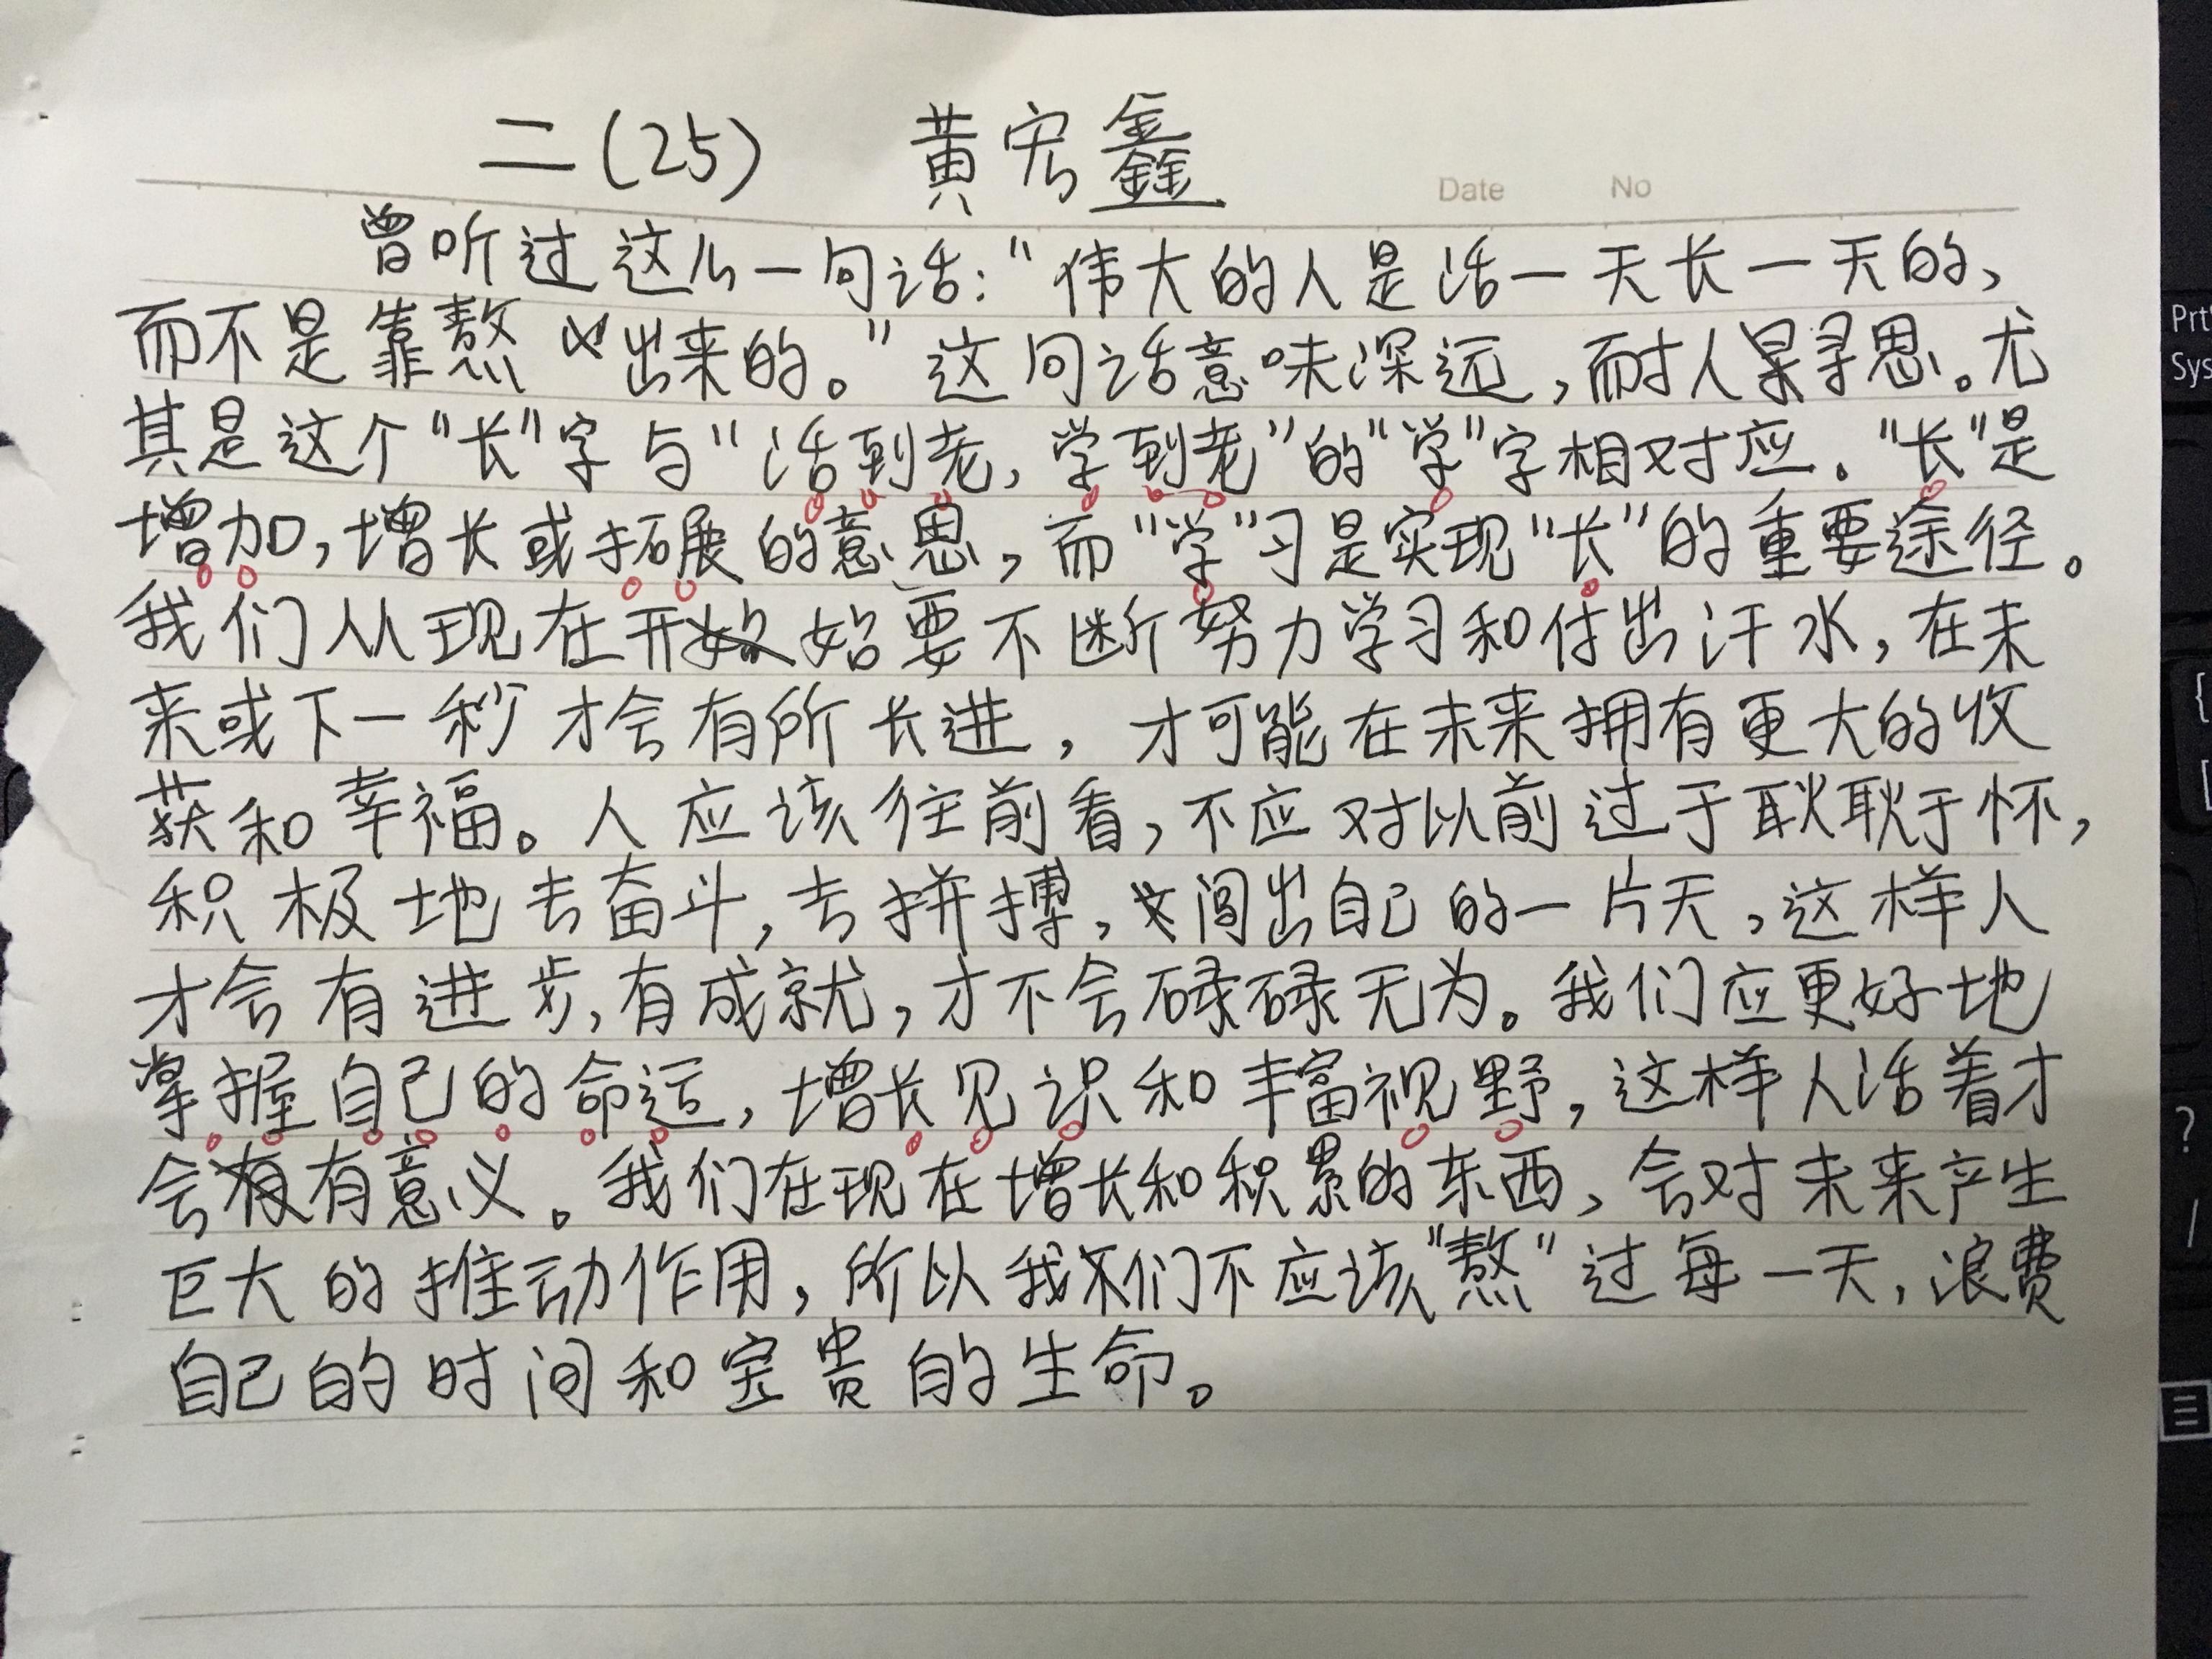 二(25) 黄宏鑫
Date No
曾听过这么一句话:"伟大的人是活一天长一天的,
而不是靠熬出来的。"这句话意味深远,耐人寻思。尤
其是这个"长"字与"活到老,学到老"的"学"字相对应。"长"是
增加,增长或拓展的意思,而"学"习是实现"长"的重要途径。
我们从现在开始要不断努力学习和付出汗水,在未
来或下一秒才会有所长进,才可能在未来拥有更大的收
获和幸福。人应该往前看,不应对以前过于耿耿于怀,
积极地去奋斗,去拼搏,闯出自己的一片天,这样人
才会有进步,有成就,才不会碌碌无为。我们应更好地
掌握自己的命运,增长见识和丰富视野,这样人活着才
会有意义。我们在现在增长和积累的东西,会对未来产生
巨大的推动作用,所以我们不应该"熬"过每一天,浪费
自己的时间和宝贵的生命。
Prt
Sys
{
[
?
/